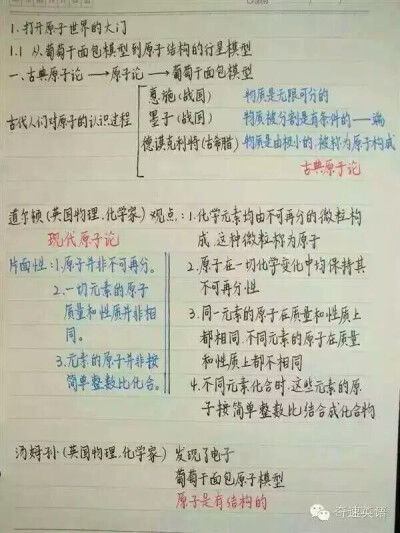 1.打开原子世界的大门
1.1 从葡萄干面包模型到原子结构的行星模型
一.古典原子论→原子论→葡萄干面包模型
惠施(战国) 物质是无限可分的
古代人们对原子的认识过程 墨子(战国) 物质被分割是有条件的—端
德谟克利特(古希腊) 物质是由极小的,被称为原子构成
古典原子论
道尔顿(英国物理.化学家)观点:1.化学元素均由不可再分的微粒构
现代原子论 成.这种微粒称为原子
片面性:1.原子并非不可再分。 2.原子在一切化学变化中均保持其
不可再分性
2.一切元素的原子
质量和性质并非相
同。
3.同一元素的原子在质量和性质上
都相同.不同元素的原子在质量
和性质上都不相同
3.元素的原子并非按
简单整数比化合。
4.不同元素化合时.这些元素的原
子按简单整数比结合成化合构
汤姆孙(英国物理.化学家) 发现了电子
葡萄干面包原子模型
原子是有结构的
奇速英语